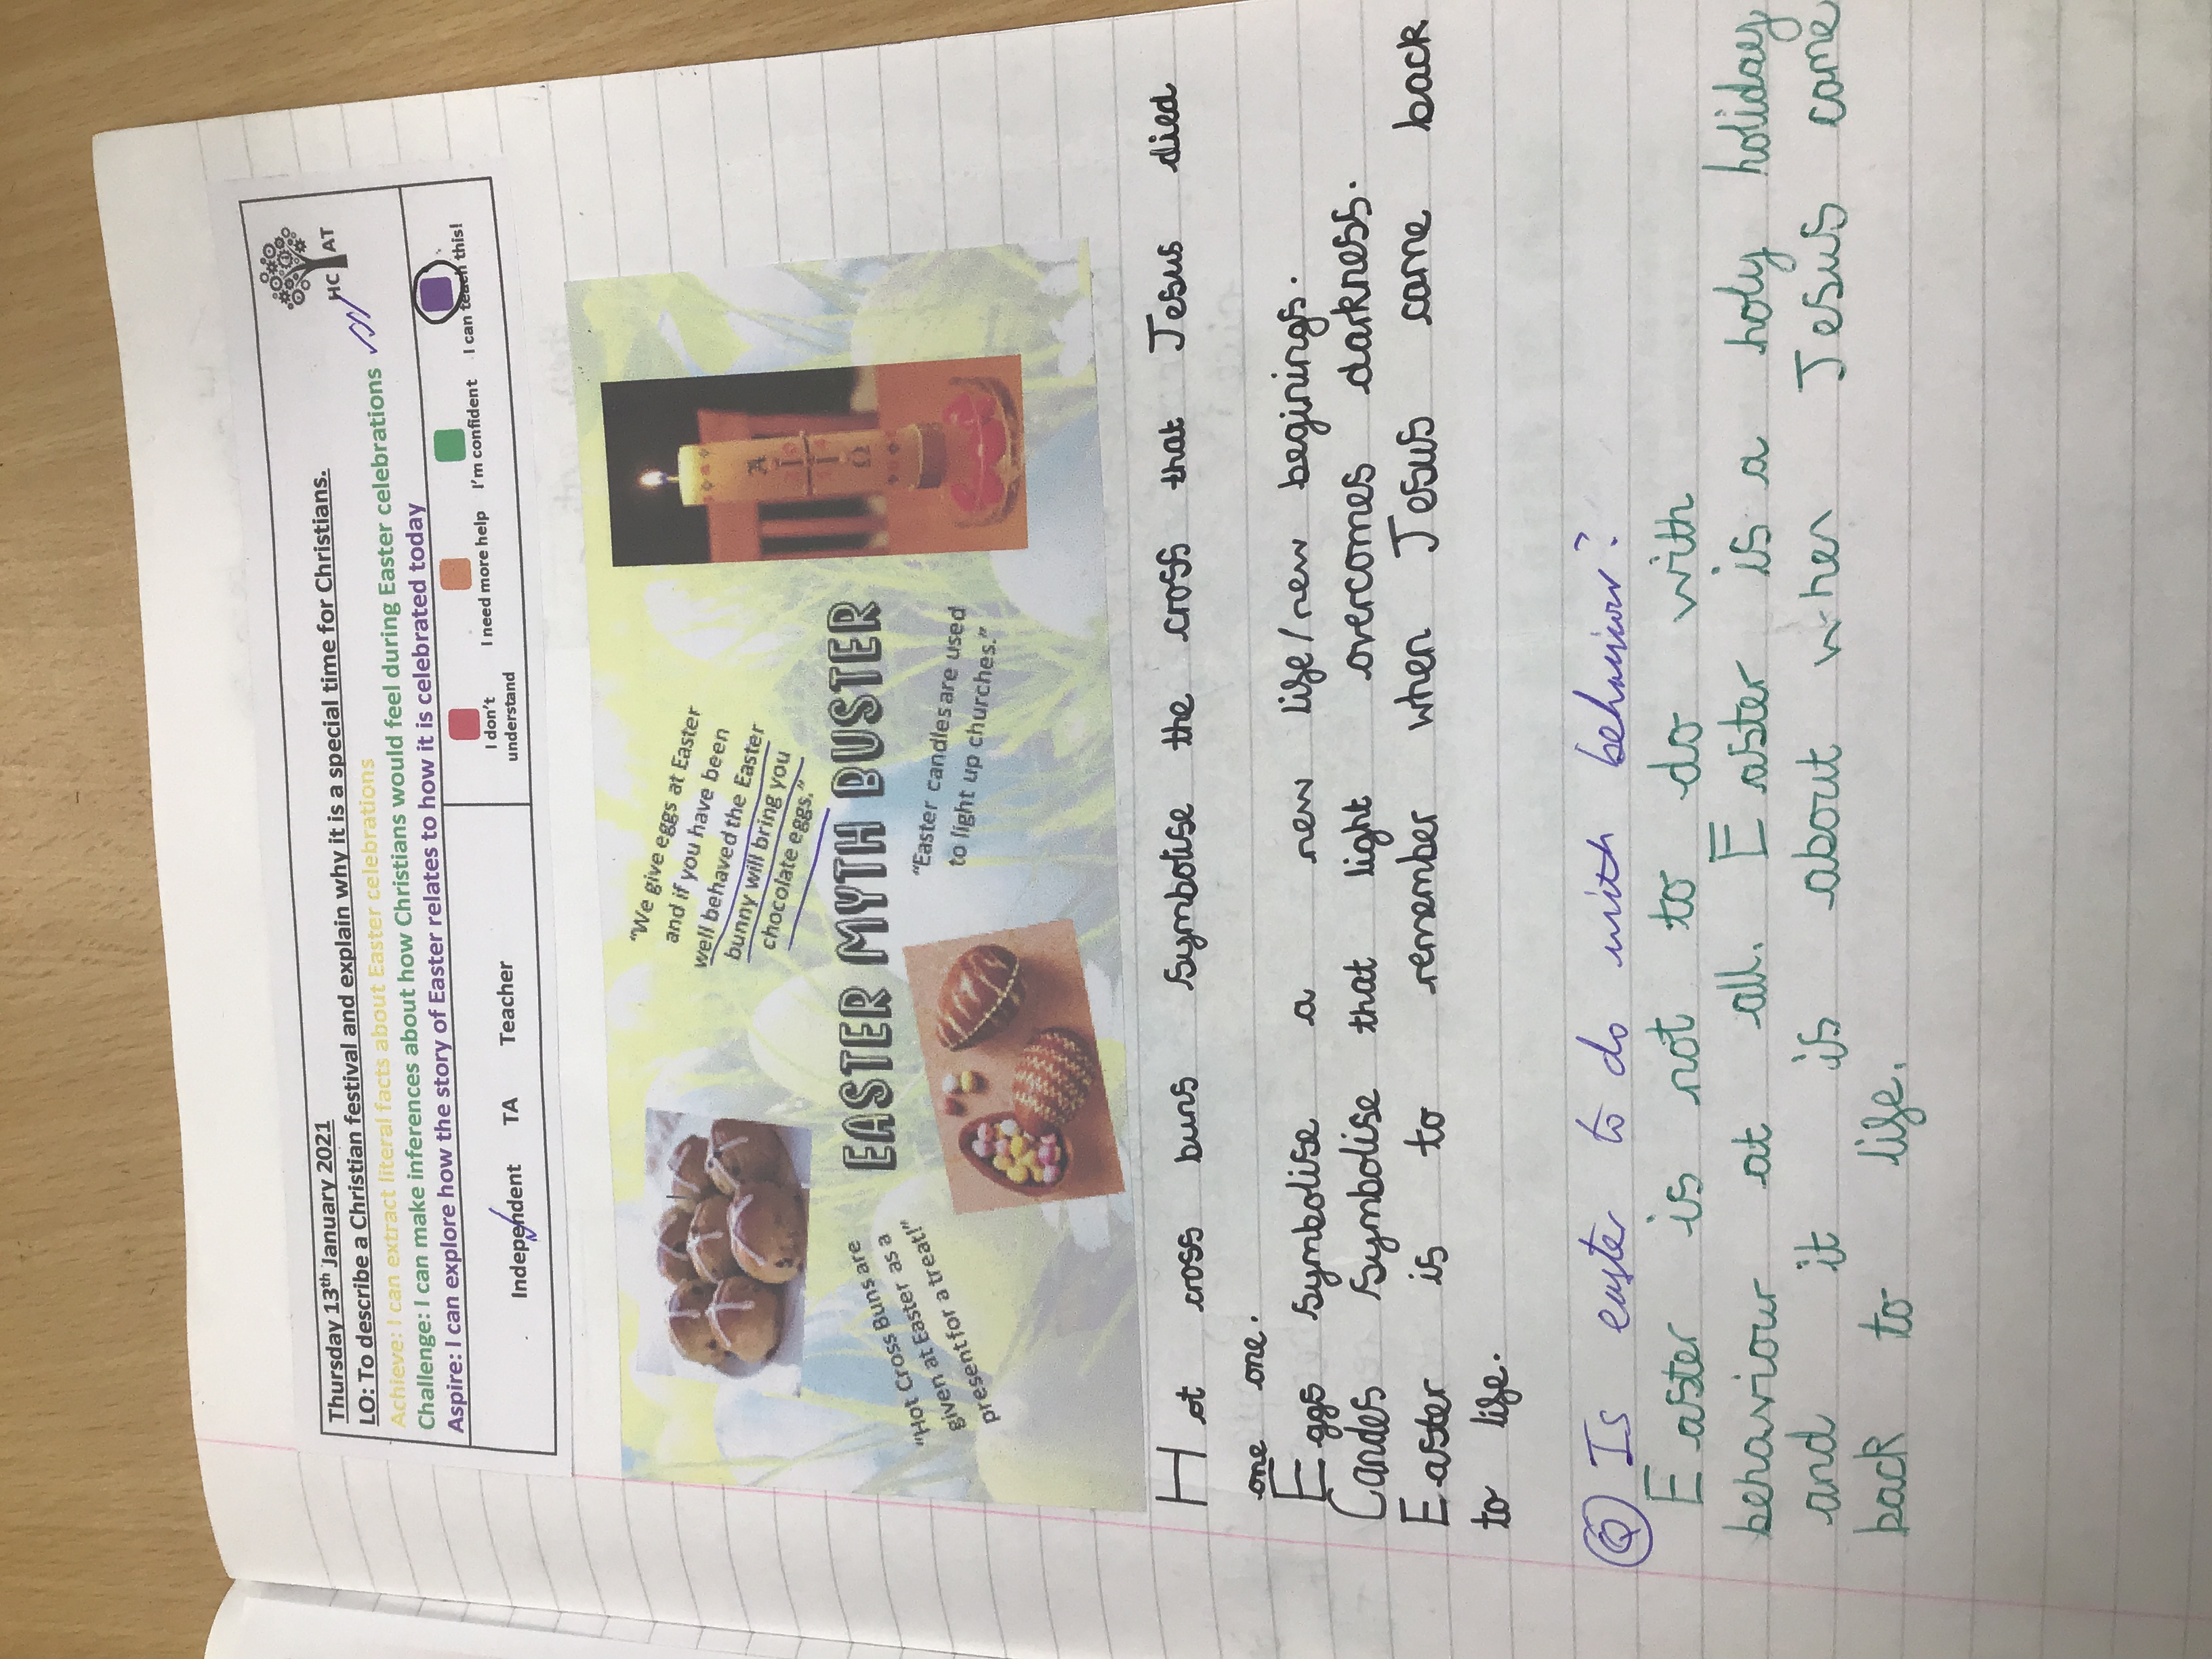 Thursday 13th January 2021
LO: To describe a Christian festival and explain why it is a special time for Christians.
Achieve: I can extract literal facts about Easter celebrations
Challenge: I can make inferences about how Christians would feel during Easter celebrations
Aspire: I can explore how the story of Easter relates to how it is celebrated today
HC AT
Independent TA Teacher
I don't
understand
I need more help
I'm confident
I can teach this!
"We give eggs at Easter
and if you have been
well behaved the Easter
bunny will bring you
chocolate eggs."
EASTER MYTH BUSTER
"Hot Cross Buns are
given at Easter as a
present for a treat!"
"Easter candles are used
to light up churches."
Hot cross buns symbolise the cross that Jesus died
one one.
Eggs symbolise a new life/new beginings.
Candes symbolise that light overcomes darkness.
Easter is to remember when Jesus come back
to life.
Q Is easter to do with behaviour?
Easter is not to do with
behaviour at all. Easter is a holy holiday
and it is about when Jesus come
back to life.